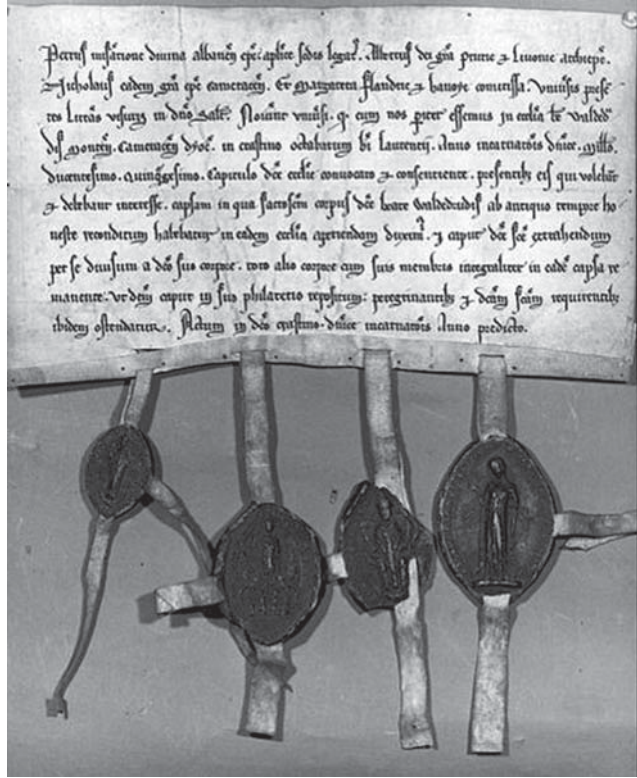 Petrus mis̅atione divina albanen̅ ep̅c aplice sedis legat᷒. Albertus dei gr̅a prucie ⁊ Livonie archiep̅c.
Nicholaus eadem gr̅a ep̅c cameracen̅. Et Margareta flandrie ⁊ hanoye comitissa. Vniu̅sis prese̅
tes litt̅as visuris in dn̅o salt̅. Nou̅int vniu̅si. q̅ cum nos p̅ter essemus in eccl̅ia be̅ Walded᷒
dis Monten̅. Cameracen̅ dyoc̅. in crastino octabarum bi̅ Laurencii. Anno incarnat̅ois dn̅ice. Mill̅o.
ducentesimo. quinq̅gesimo. Capitulo dc̅e eccl̅ie conuocato ⁊ consentiente. presentib; eis qui voleba̅t
⁊ debebant interesse. capsam in qua sacrosc̅m corpus dc̅e beate Waldedrudis ab antiquo tempore ho
neste reconditum habebatur in eadem eccl̅ia aperiendam duxim᷒. ⁊ caput dc̅e sc̅e extrahendum
per se diuisum a dc̅o suo corpore. toto alio corpore cum suis membris integraliter in cade̅ capsa re
manente. vt dc̅m caput in suo philaterio repositum: peregrinantib; ⁊ dc̅am sc̅am requirentib;
ibidem ostendatur. Actum in dc̅o crastino. dn̅ice incarnat̅ois Anno predicto.